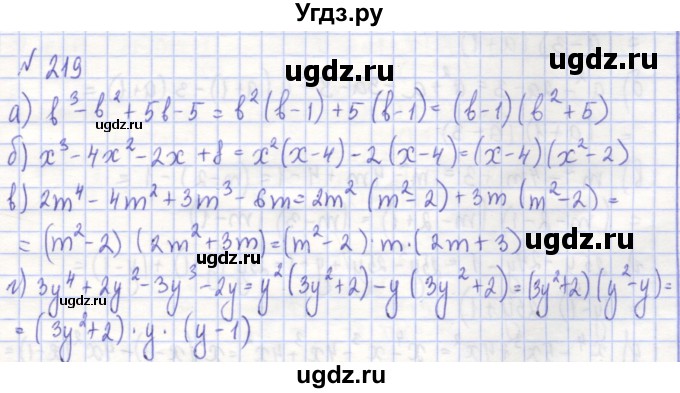 Угдз.ру
№ 219
ugdz.ru ugdz.ru
а) b³ - b² + 5b - 5 = b²(b-1) + 5(b-1) = (b-1)(b²+5)
ugdz.ru
б) x³ - 4x² - 2x + 8 = x²(x-4) - 2(x-4) = (x-4)(x²-2)
в) 2m⁴ - 4m² + 3m³ - 6m = 2m²(m²-2) + 3m(m²-2) =
= (m²-2)(2m²+3m) = (m²-2)·m·(2m+3)
ugdz.ru ugdz.ru
г) 3y⁴ + 2y² - 3y³ - 2y = y²(3y²+2) - y(3y²+2) = (3y²+2)(y²-y) =
= (3y²+2)·y·(y-1)
ugdz.ru
ugdz.ru